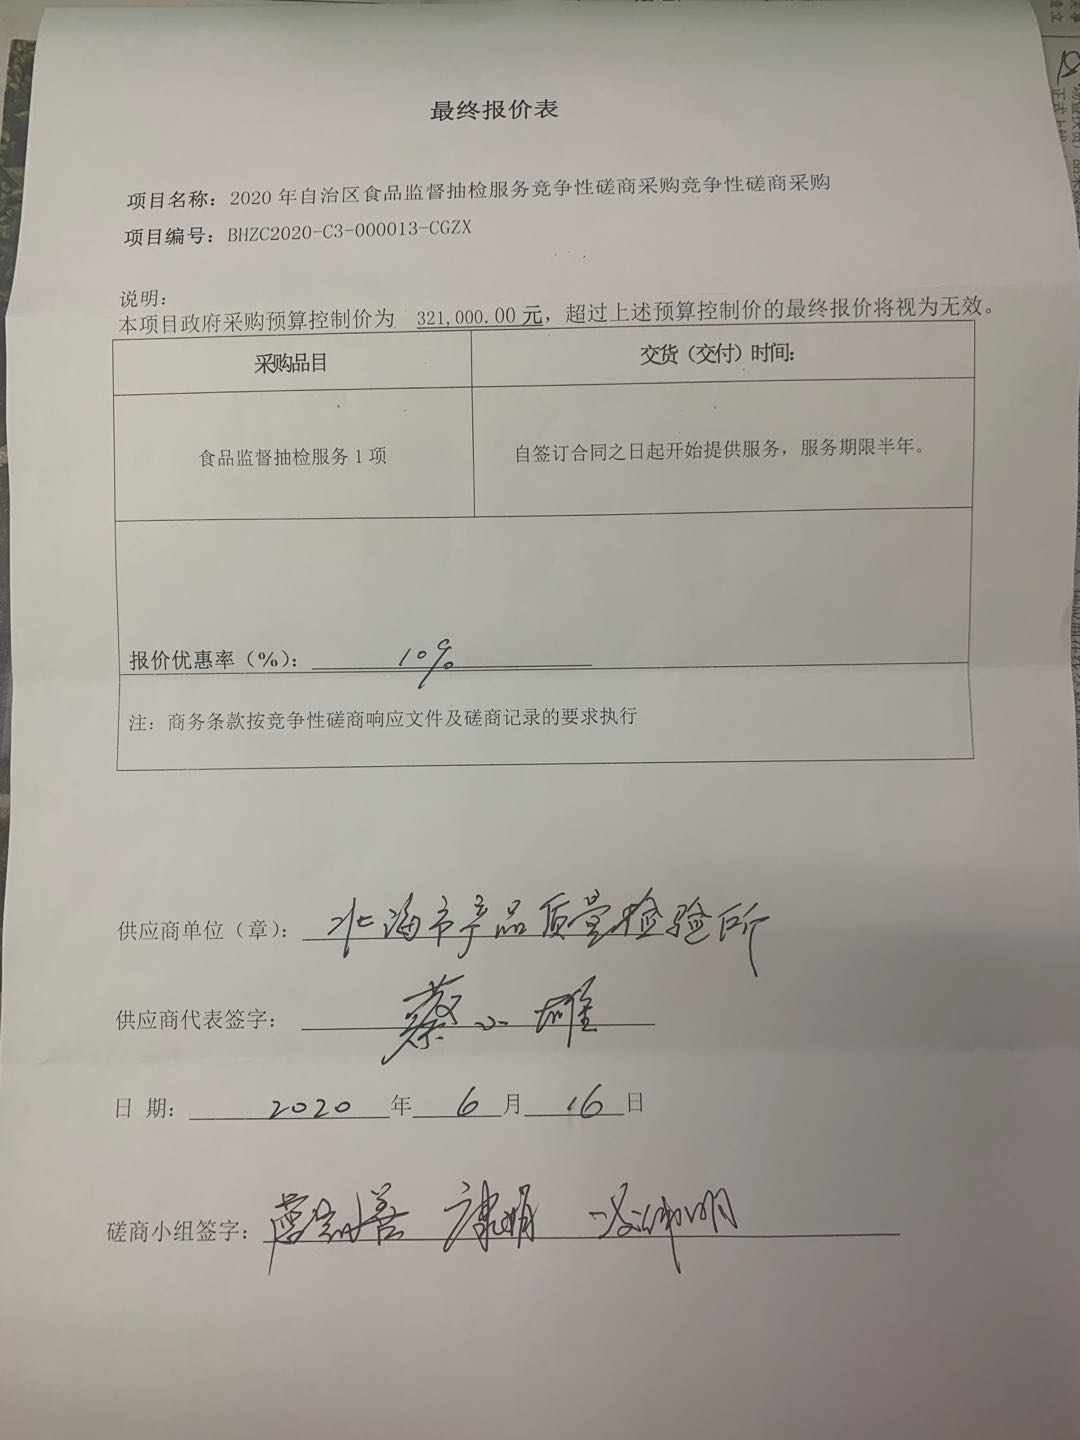 最终报价表
项目名称：2020 年自治区食品监督抽检服务竞争性磋商采购竞争性磋商采购
项目编号：BHZC2020-C3-000013-CGZX
说明：
本项目政府采购预算控制价为 321,000.00 元，超过上述预算控制价的最终报价将视为无效。
采购品目 交货（交付）时间：
食品监督抽检服务 1 项 自签订合同之日起开始提供服务，服务期限半年。
报价优惠率（%）： 10%
注：商务条款按竞争性磋商响应文件及磋商记录的要求执行
供应商单位（章）：北海市产品质量检验所
供应商代表签字：蔡小雄
日 期： 2020 年 6 月 16 日
磋商小组签字：